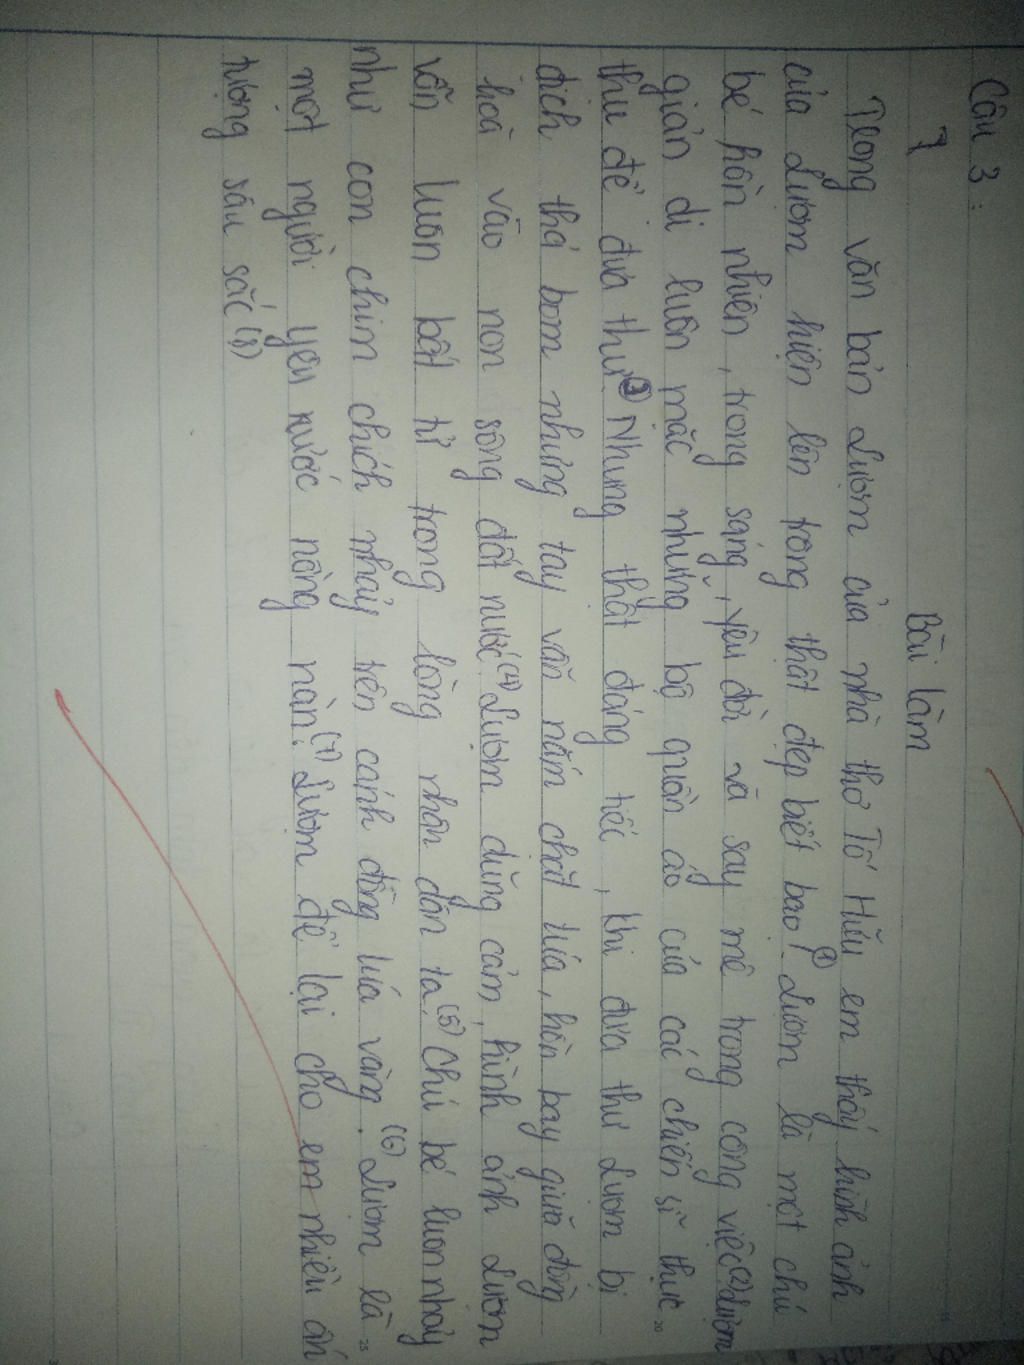 Câu 3:
Bài làm
Trong văn bản Lượm của nhà thơ Tố Hữu em thấy hình ảnh
của Lượm hiện lên trong thật đẹp biết bao! (1) Lượm là một chú
bé hồn nhiên, trong sáng, yêu đời và say mê trong công việc (2) Lượm
giản dị luôn mặc những bộ quần áo của các chiến sĩ thực
thu để đưa thư (3) Nhưng thật đáng tiếc, khi đưa thư Lượm bị
địch thả bom nhưng tay vẫn nắm chặt lúa, hồn bay giữa đồng
hoà vào non sông đất nước (4) Lượm dũng cảm, hình ảnh Lượm
vẫn luôn bất tử trong lòng nhân dân ta. (5) Chú bé luôn nhảy
như con chim chích nhảy trên cánh đồng lúa vàng. (6) Lượm là
một người yêu nước nồng nàn. (7) Lượm để lại cho em nhiều ấn
tượng sâu sắc (8)